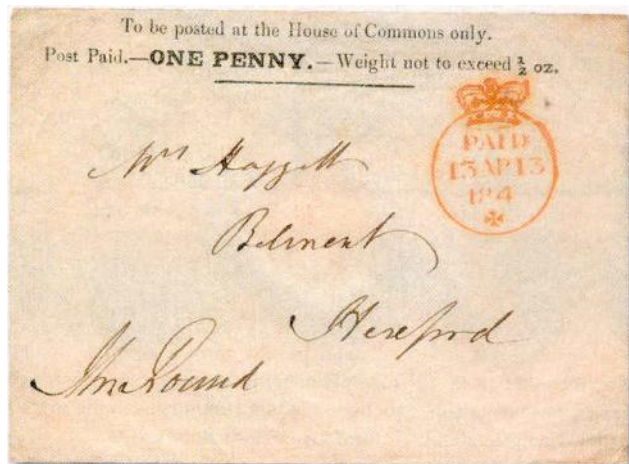 To be posted at the House of Commons only.
Post Paid.—ONE PENNY.—Weight not to exceed ½ oz.
PAID
13 AP 13
184
Mrs Haggett
Belmont
Hereford
Jno Round